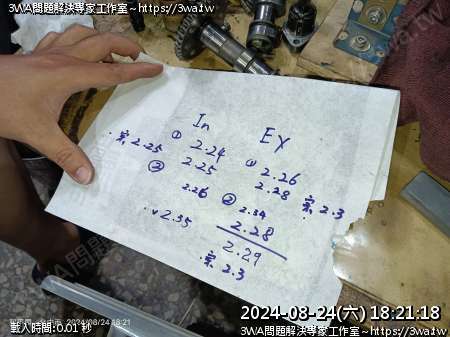 3WA問題解決專家工作室~https://3wa.tw
3WA問題解決專家工作室~https://3wa.tw
In
EX
2.25 ① 2.24
2.25
② 2.26
2.35
① 2.26
2.28
2.3
② 2.34
2.28
2.29
2.3
2024-08-24(六) 18:21:18
載入時間:0.01 秒
2024/08/24 18:21
3WA問題解決專家工作室~https://3wa.tw